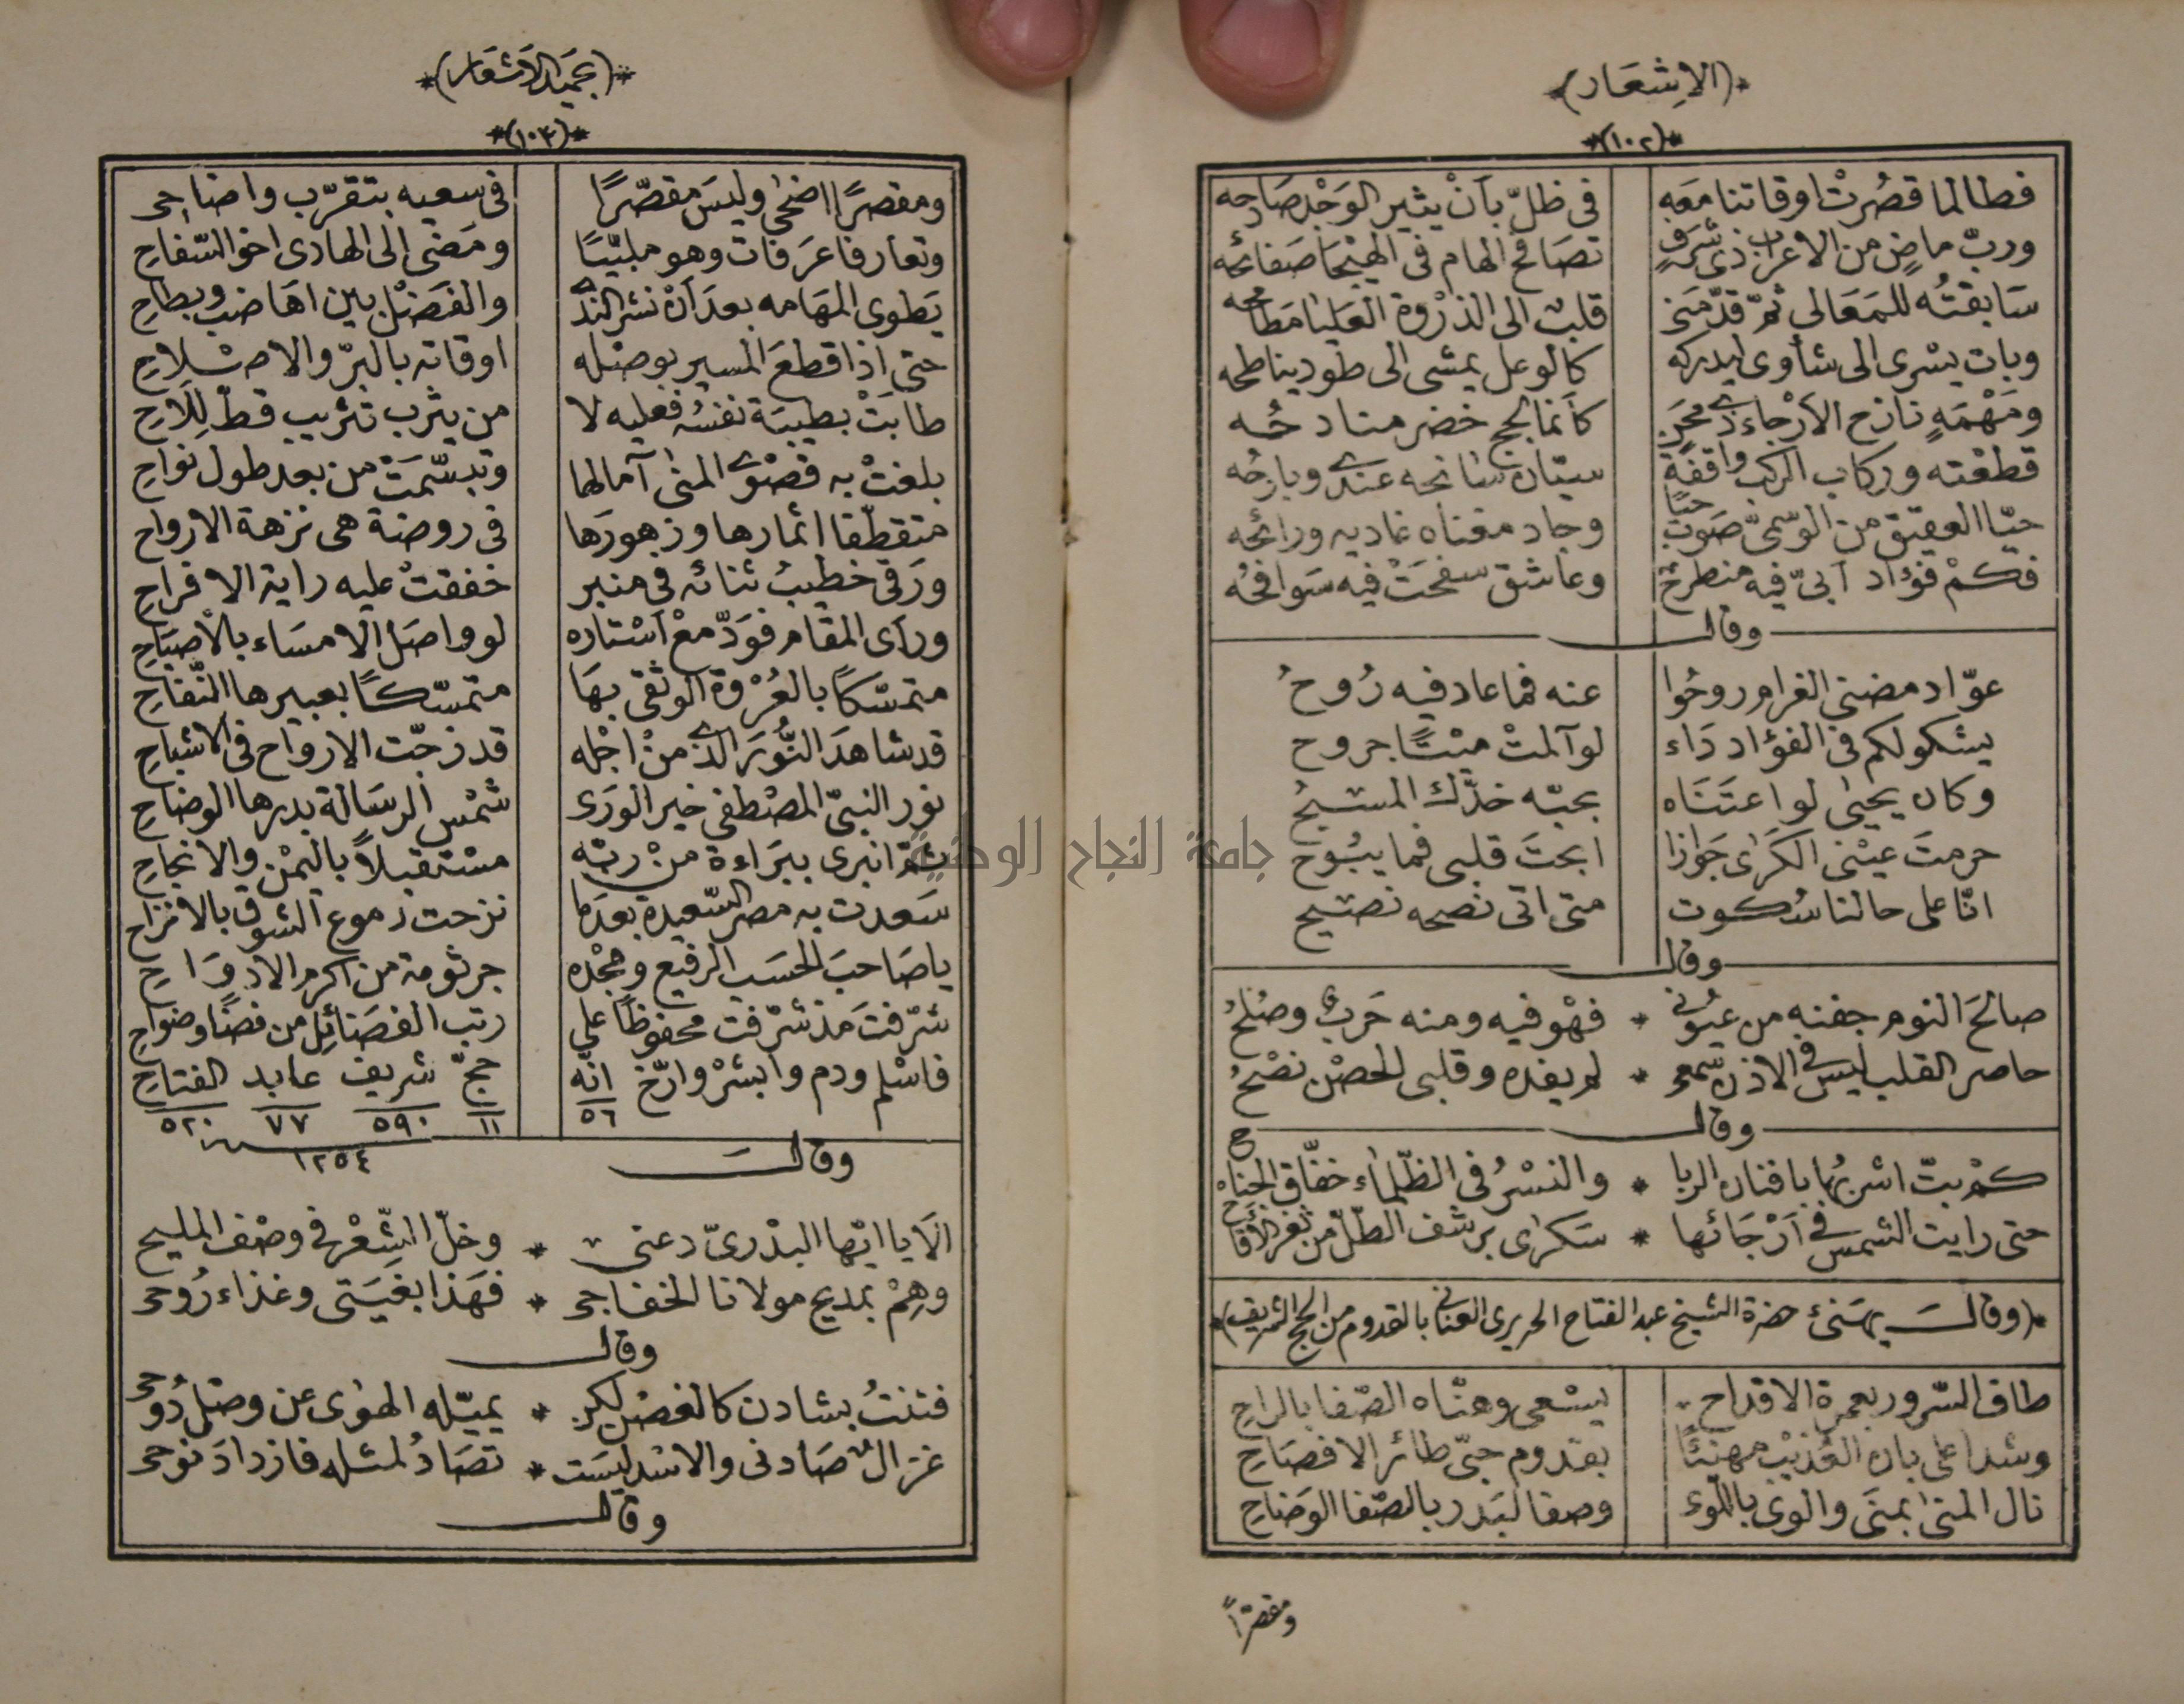 *(الاِشعَار)*
*(١٠٢)*
فطالما قصُرتْ اوقاتنا معَه في ظلّ بأنْ يثير الوَجْد صَادحه
وربّ ماضٍ من الاعراب ذى شرَفٍ تصَافح الهام في الهيْجَا صَفائحُه
سَابقتُه للمَعَالي ثمّ قدّمَنى قلبٌ الى الذرْوة العَليا مَطامحه
وبات يسْرى الى شأوى ليدركه كالوعل يمشى الى طود يناطحه
ومَهْمَهٍ نازح الاَرْجاء ذى محَنٍ كأنما لجج خضر منادحُه
قطعْته وركاب الركب واقفة سيّان سَانحه عندى وبارحُه
حيّا العقيق من الوسْمىّ صَوبُ حيًا وجاد مغناه غاديه ورائحُه
فكمْ فؤاد أبىّ فيه منطرحٌ وعاشق سفحَتْ فيه سَوافحُه
وقال
عوّاد مضنى الغرام روحُوا عنه فما عاد فيه رُوحُ
يشكو لكم في الفؤاد دَاء لو آلمتْ ميْتًا جروح
وكان يحيىٰ لو اعتَنَاه بحبّه خدّك المسيحُ
حرمتَ عيْنى الكَرَى جَوازا ابحتَ قلبى فما يبُوح
انّا على حالنا سُكوت متى اتى نصحه نصيح
وقال
صالحَ النوم جفنه من عيُونى * فهْو فيه ومنه حَربٌ وصُلحُ
حاصر القلب ليس في الاذن سمعى * لم يفده وقلبى الحصْن نصْحُ
وقال
كمْ بتّ اشربُها بافنان الربا * والنسْرُ في الظّلماء خفّاق الجناحْ
حتى رايت الشمس في أرْجَائها * سَكرى برشف الطّلّ من ثغر الأقاحْ
*(وقال يهَنئ حضرة الشيخ عبد الفتاح الحريرى العنانى بالقدوم من الحج الشريف)*
طاف السّرور بعمرة الاقداح يسْعى وهنّاه الصّفا بالراحِ
وشدا على بان العُذيْب مهنئًا بقدوم حبّى طائر الافصَاحِ
نال المنىٰ بمنَى والوى باللّوى وصفا لبَدر بالصّفا الوَضاحِ
ومقصّرًا
*(بحَميد الاَشعَار)*
*(١٠٣)*
ومقصّرًا اضحٰى وليسَ مقصّرًا في سعيه بتقرّب واضاحى
وتعارفا عَرَفات وهو ملبّيًا ومَضى الى الهادى اخو السّفاحِ
يَطوى المهَامه بعدَ أنْ نشر النّدى والفَضْل بين اهَاضب وبطاحِ
حتى اذا قطعَ المسير بوصْله اوقاته بالبرّ والاصْلاحِ
طابَتْ بطيبَة نفسُه فعليه لا من يثرب تثريب قطّ للاحِ
بلغتْ به قصْوى المنى آمالها وتبسّمَتْ من بعد طول نواحِ
متقطّفا اثمارها وزهورَها في روضة هى نزهة الارواحِ
ورَقى خطيبُ ثنائه في منبر خفقتْ عليه راية الافراحِ
ورأى المقام فوَدّ معْ اَسْتاره لو واصَل الامسَاء بالاصبَاحِ
متمسّكًا بالعُرْوة الوثقى بهَا متمسّكًا بعبيرها النّفاحِ
قد شاهدَ النُّورَ الذى منْ اجْله قد زجّت الارواح في الاشباحِ
نور النبىّ المصْطفى خير الورَى شمْس الرسَالة بدرها الوضاحِ
ثمّ انبرى ببَراءة منْ ربّه مسْتقبلاً باليمْن والانجاحِ
سَعدت به مصر السّعيدة بعدَما نزحت دموع الشوق بالانزاحِ
يا صَاحبَ الحسَب الرفيع ومجْده جرثومة من اكرم الادوَاحِ
شرّفتَ مَذ شرّفت محفوظًا على رتب الفضَائل من فضًا وضواحِ
فاسْلم ودم وابشرْ وارّخ انّه حجّ شريف عابد الفتاحِ
٥٦ ١١ ٥٩٠ ٧٧ ٥٢٠
١٢٥٤
وقال
الَا يا ايّها البدْرىّ دعنى * وخلّ الشّعْر في وصْف المليح
وهِمْ بمديح مولانا الخفاجى * فهَذا بغيَتى وغذاء رُوحى
وقال
فتنتُ بشادن كالغصْن لكن * يميّله الهوٰى عن وصْل دُوحى
غزالٌ صَادنى والاسْد ليسَت * تصَادُ لمثله فازدادَ نوحى
وقال
جامعة النجاح الوطنية